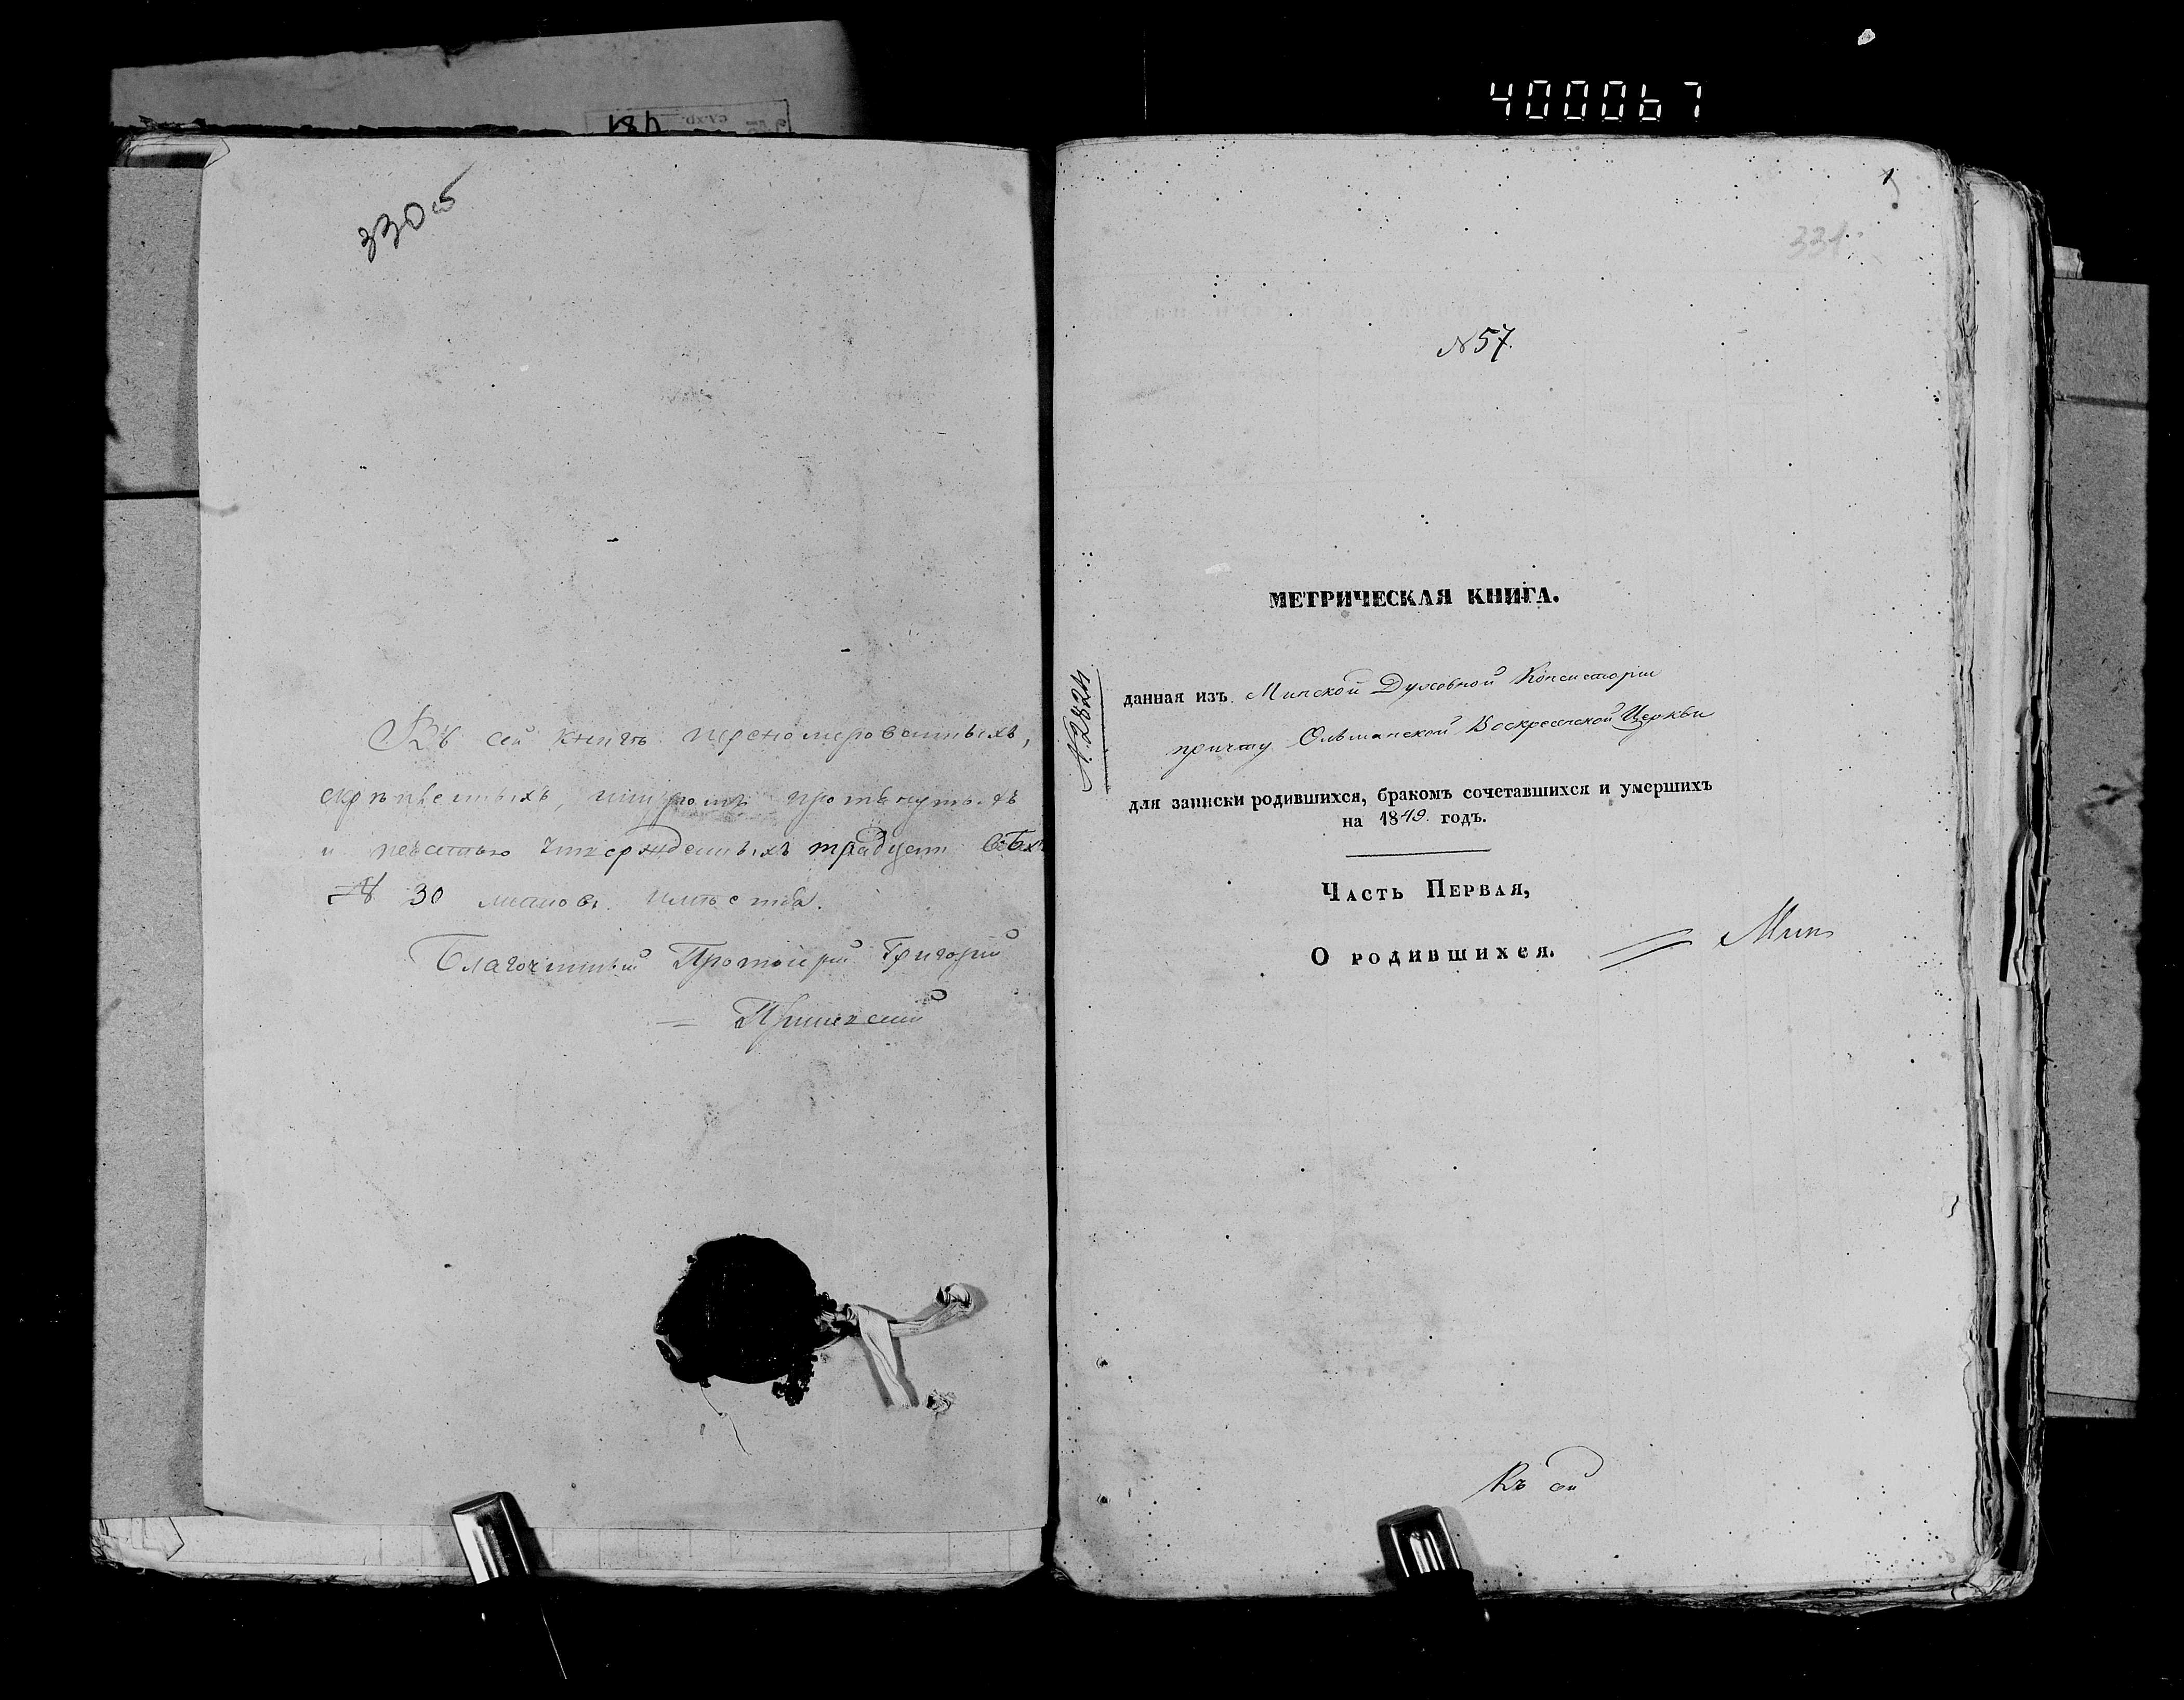 400067
184
ед.хр.
330 об
Въ сей книгѣ перенумерованныхъ,
скрѣпленныхъ, шнуромъ протянутыхъ
и печатью утвержденныхъ тридцать
№ 30 листовъ
Благочинный Протоіерей Григорій
1
331
№ 57
МЕТРИЧЕСКАЯ КНИГА.
№ 2824
данная изъ Минской Духовной Консисторіи
причту Ольманской Воскресенской Церкви
для записки родившихся, бракомъ сочетавшихся и умершихъ
на 1849 годъ.
Часть Первая,
О родившихся.
Мин
Къ сей